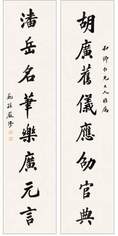 胡廣舊儀應劭官典
潘岳名華樂廣元言